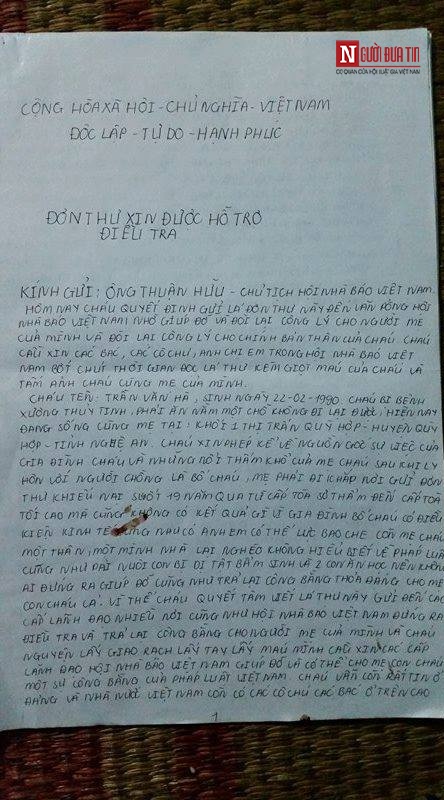 NGƯỜI ĐƯA TIN
CƠ QUAN CỦA HỘI LUẬT GIA VIỆT NAM
CỘNG HÒA XÃ HỘI - CHỦ NGHĨA - VIỆT NAM
ĐỘC LẬP - TỰ DO - HẠNH PHÚC
ĐƠN THƯ XIN ĐƯỢC HỖ TRỢ
ĐIỀU TRA
KÍNH GỬI: ÔNG THUẬN HỮU - CHỦ TỊCH HỘI NHÀ BÁO VIỆT NAM.
HÔM NAY CHÁU QUYẾT ĐỊNH GỬI LÁ ĐƠN THƯ NÀY ĐẾN VĂN PHÒNG HỘI
NHÀ BÁO VIỆT NAM NHỜ GIÚP ĐỠ VÀ ĐÒI LẠI CÔNG LÝ CHO NGƯỜI MẸ
CỦA MÌNH VÀ ĐÒI LẠI CÔNG LÝ CHO CHÍNH BẢN THÂN CỦA CHÁU. CHÁU
CẦU XIN CÁC BÁC, CÁC CÔ CHÚ, ANH CHỊ EM TRONG HỘI NHÀ BÁO VIỆT
NAM BỚT CHÚT THỜI GIAN ĐỌC LÁ THƯ KÈM GIỌT MÁU CỦA CHÁU VÀ
TẤM ẢNH CHÁU CÙNG MẸ CỦA MÌNH.
CHÁU TÊN: TRẦN VĂN HÀ, SINH NGÀY 22-02-1990. CHÁU BỊ BỆNH
XƯƠNG THỦY TINH, PHẢI ĂN NẰM MỘT CHỖ KHÔNG ĐI LẠI ĐƯỢC, HIỆN NAY
ĐANG SỐNG CÙNG MẸ TẠI: KHỐI 1 THỊ TRẤN QUỲ HỢP - HUYỆN QUỲ
HỢP - TỈNH NGHỆ AN. CHÁU XIN PHÉP KỂ VỀ NGUỒN GỐC SỰ VIỆC CỦA
GIA ĐÌNH CHÁU VÀ NHỮNG NỖI THẬM KHỔ CỦA MẸ CHÁU SAU KHI LY
HÔN VỚI NGƯỜI CHỒNG LÀ BỐ CHÁU, MẸ PHẢI ĐI KHẮP NƠI GỬI ĐƠN
THƯ KHIẾU NẠI SUỐT 19 NĂM QUA TỪ CẤP TÒA SƠ THẨM ĐẾN CẤP TÒA
TỐI CAO MÀ CŨNG KHÔNG CÓ KẾT QUẢ GÌ VÌ GIA ĐÌNH BỐ CHÁU CÓ ĐIỀU
KIỆN KINH TẾ CŨNG NHƯ CÓ ANH EM CÓ THẾ LỰC BAO CHE CÒN MẸ CHÁU
MỘT THÂN, MỘT MÌNH NHÀ LẠI NGHÈO KHÔNG HIỂU BIẾT VỀ PHÁP LUẬT
CŨNG NHƯ PHẢI NUÔI CON BỊ DỊ TẬT BẨM SINH VÀ 2 CON ĂN HỌC NÊN KHÔNG
AI ĐỨNG RA GIÚP ĐỠ CŨNG NHƯ TRẢ LẠI CÔNG BẰNG THỎA ĐÁNG CHO MẸ
CON CHÁU CẢ. VÌ THẾ CHÁU QUYẾT TÂM VIẾT LÁ THƯ NÀY GỬI ĐẾN CÁC
CẤP LÃNH ĐẠO NHIỀU NƠI CŨNG NHƯ HỘI NHÀ BÁO VIỆT NAM ĐỨNG RA
ĐIỀU TRA VÀ TRẢ LẠI CÔNG BẰNG CHO NGƯỜI MẸ CỦA MÌNH VÀ CHÁU
NGUYỆN LẤY DAO RẠCH LẤY TAY LẤY MÁU MÌNH CẦU XIN CÁC CẤP
LÃNH ĐẠO HỘI NHÀ BÁO VIỆT NAM GIÚP ĐỠ VÀ CÓ THỂ CHO MẸ CON CHÁU
MỘT SỰ CÔNG BẰNG CỦA PHÁP LUẬT VIỆT NAM. CHÁU VẪN CÒN RẤT TIN Ở
ĐẢNG VÀ NHÀ NƯỚC VIỆT NAM CÒN CÓ CÁC CÔ CHÚ CÁC BÁC Ở TRÊN CAO
1